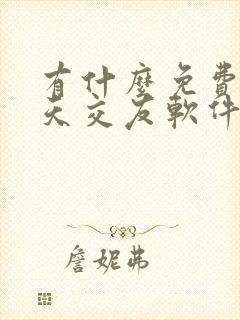 有什麼免費
天交友軟件
詹妮弗